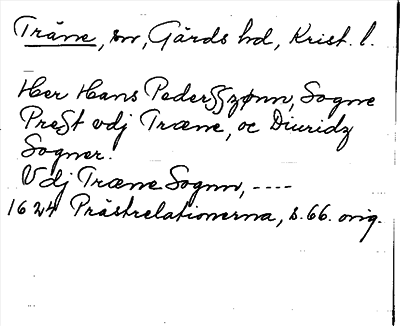 Träne, sn, Gärds hd, Krist. l.
Her Hans Pederſſzønn, Sogne
Preſt vdj Træne, oc Diuridz
Sogner.
Vdj Træne Sognn, ----
1624 Prästrelationerna, s. 66. orig.